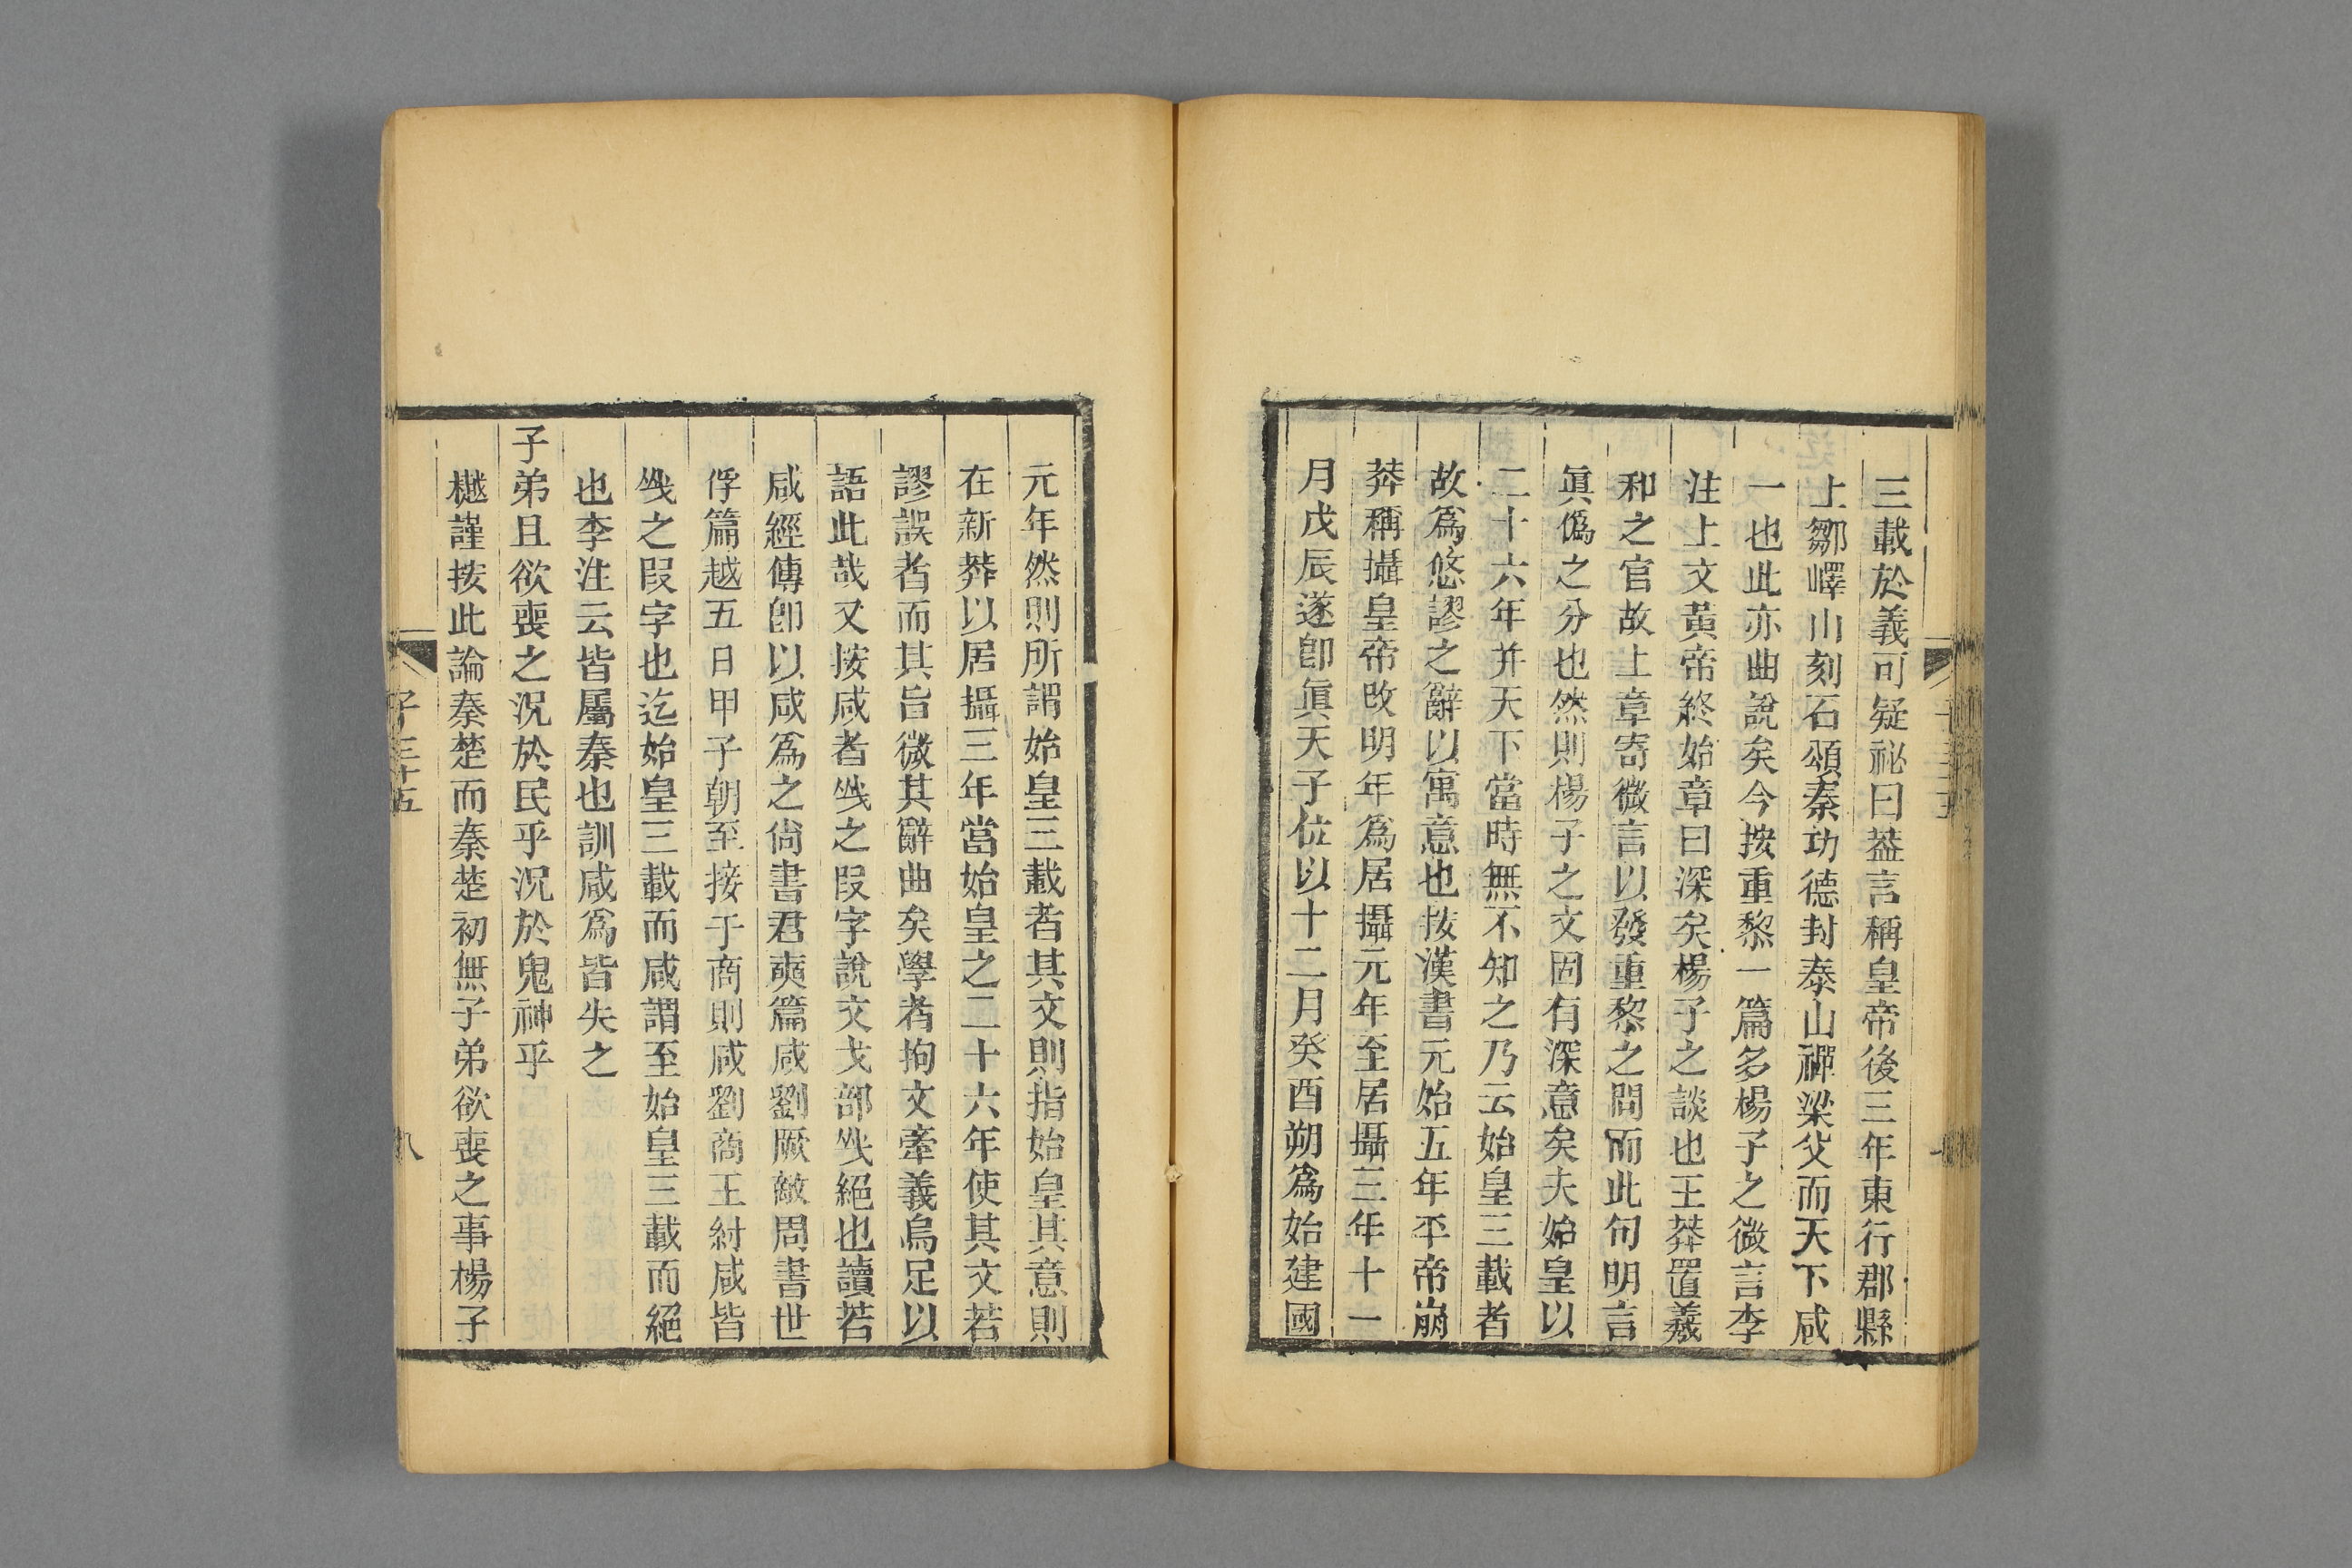 三載於義可疑祕曰葢言稱皇帝後三年東行郡縣
上鄒嶧山刻石頌秦功德封泰山禪梁父而天下咸
一也此亦曲說矣今按重黎一篇多楊子之微言李
注上文黃帝終始章曰深矣楊子之談也王莽置羲
和之官故上章寄微言以發重黎之問而此句明言
眞僞之分也然則楊子之文固有深意矣夫始皇以
二十六年并天下當時無不知之乃云始皇三載者
故爲悠謬之辭以寓意也按漢書元始五年平帝崩
莽稱攝皇帝改明年爲居攝元年至居攝三年十一
月戊辰遂卽眞天子位以十二月癸酉朔爲始建國
元年然則所謂始皇三載者其文則指始皇其意則
在新莽以居攝三年當始皇之二十六年使其文若
謬誤者而其旨微其辭曲矣學者拘文牽義烏足以
語此哉又按咸者㦰之叚字說文戈部㦰絕也讀若
咸經傳卽以咸爲之尙書君奭篇咸劉厥敵周書世
俘篇越五日甲子朝至接于商則咸劉商王紂咸皆
㦰之叚字也迄始皇三載而咸謂至始皇三載而絕
也李注云皆屬秦也訓咸爲皆失之
子弟且欲喪之況於民乎況於鬼神乎
樾謹按此論秦楚而秦楚初無子弟欲喪之事楊子
子三十五
八